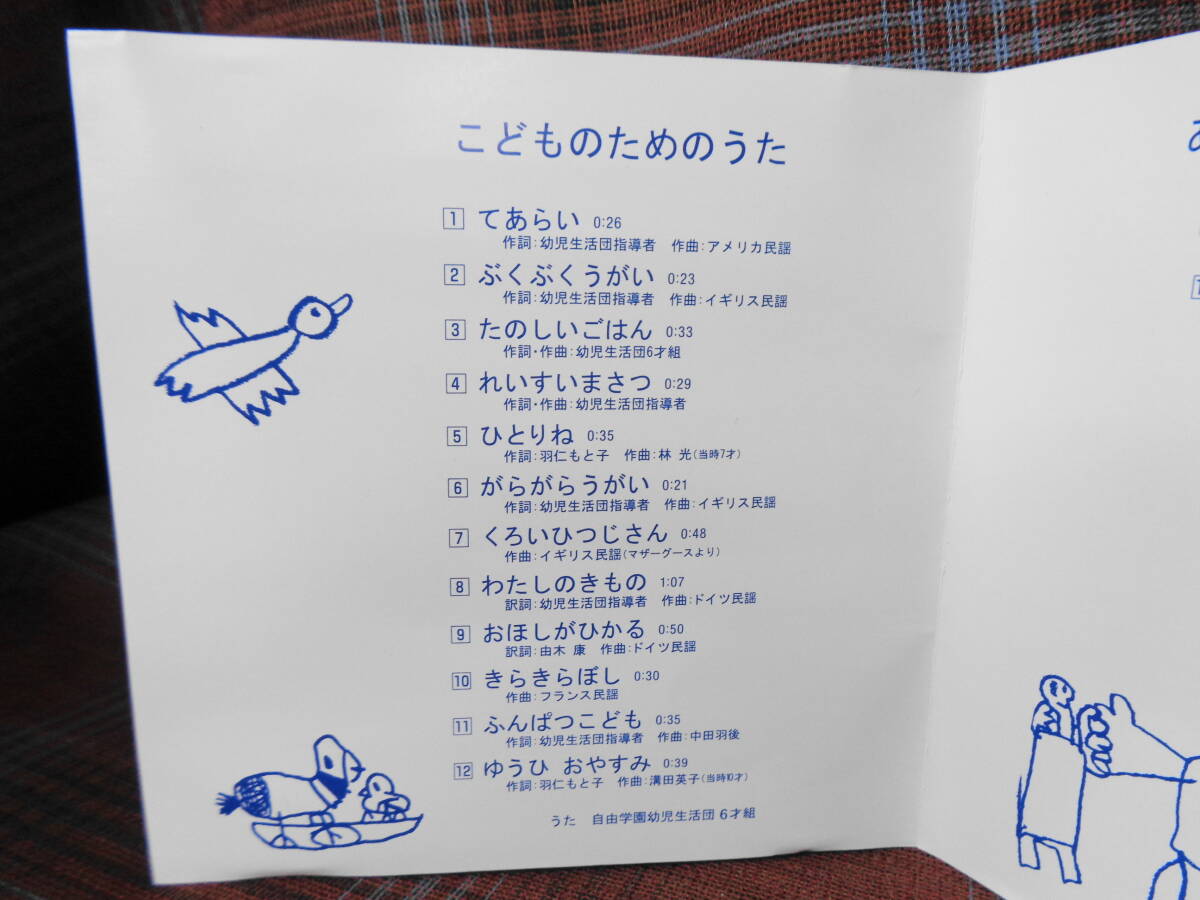 こどものためのうた
1 てあらい 0:26
作詞:幼児生活団指導者 作曲:アメリカ民謡
2 ぶくぶくうがい 0:23
作詞:幼児生活団指導者 作曲:イギリス民謡
3 たのしいごはん 0:33
作詞・作曲:幼児生活団6才組
4 れいすいまさつ 0:29
作詞・作曲:幼児生活団指導者
5 ひとりね 0:35
作詞:羽仁もと子 作曲:林 光(当時7才)
6 がらがらうがい 0:21
作詞:幼児生活団指導者 作曲:イギリス民謡
7 くろいひつじさん 0:48
作曲:イギリス民謡(マザーグースより)
8 わたしのきもの 1:07
訳詞:幼児生活団指導者 作曲:ドイツ民謡
9 おほしがひかる 0:50
訳詞:由木 康 作曲:ドイツ民謡
10 きらきらぼし 0:30
作曲:フランス民謡
11 ふんぱつこども 0:35
作詞:幼児生活団指導者 作曲:中田羽後
12 ゆうひ おやすみ 0:39
作詞:羽仁もと子 作曲:溝田英子(当時10才)
うた 自由学園幼児生活団 6才組